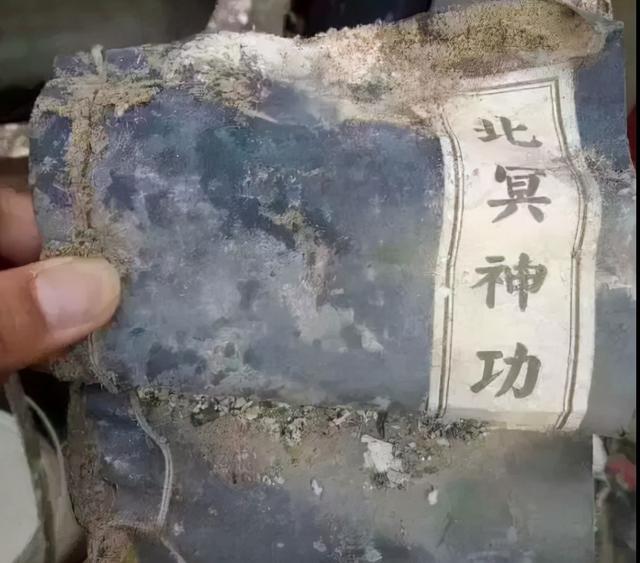 北冥神功